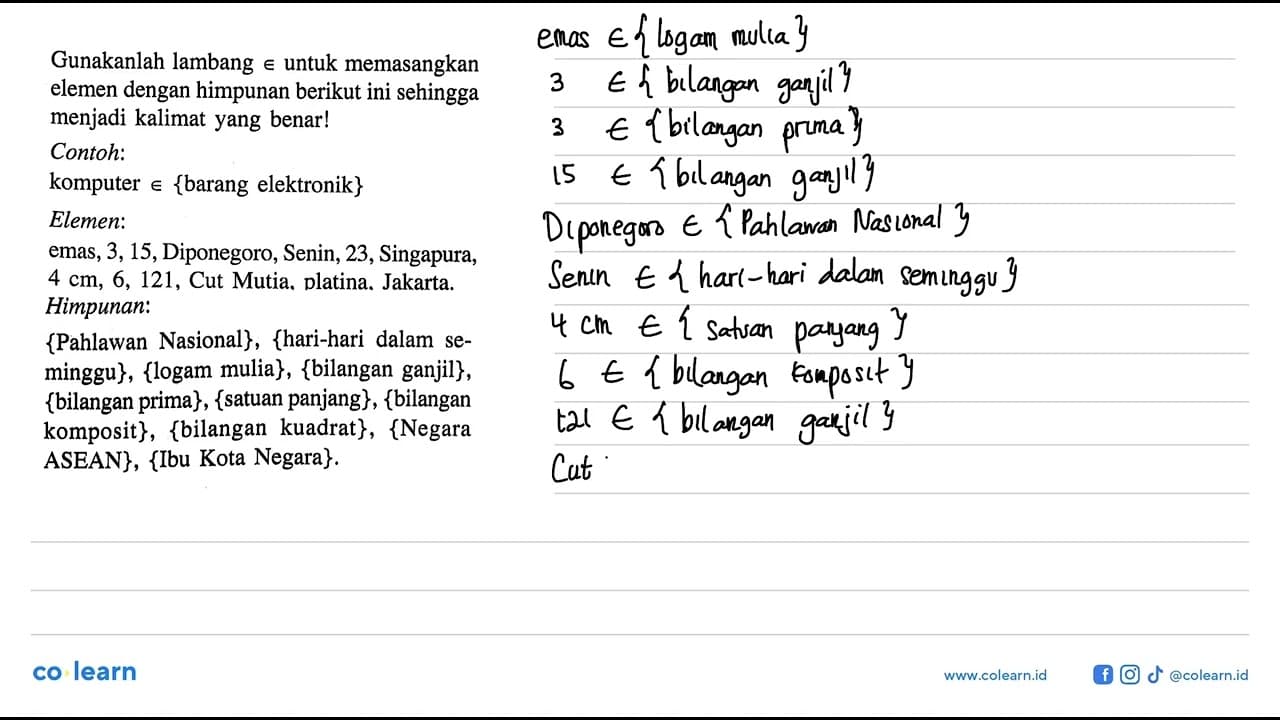 Gunakanlah lambang ∈ untuk memasangkan
elemen dengan himpunan berikut ini sehingga
menjadi kalimat yang benar!
Contoh:
komputer ∈ {barang elektronik}
Elemen:
emas, 3, 15, Diponegoro, Senin, 23, Singapura,
4 cm, 6, 121, Cut Mutia, platina, Jakarta.
Himpunan:
{Pahlawan Nasional}, {hari-hari dalam se-
minggu}, {logam mulia}, {bilangan ganjil},
{bilangan prima}, {satuan panjang}, {bilangan
komposit}, {bilangan kuadrat}, {Negara
ASEAN}, {Ibu Kota Negara}.
emas ∈ {logam mulia}
3 ∈ {bilangan ganjil}
3 ∈ {bilangan prima}
15 ∈ {bilangan ganjil}
Diponegoro ∈ {Pahlawan Nasional}
Senin ∈ {hari-hari dalam seminggu}
4 cm ∈ {satuan panjang}
6 ∈ {bilangan komposit}
121 ∈ {bilangan ganjil}
Cut
co learn
www.colearn.id
@colearn.id